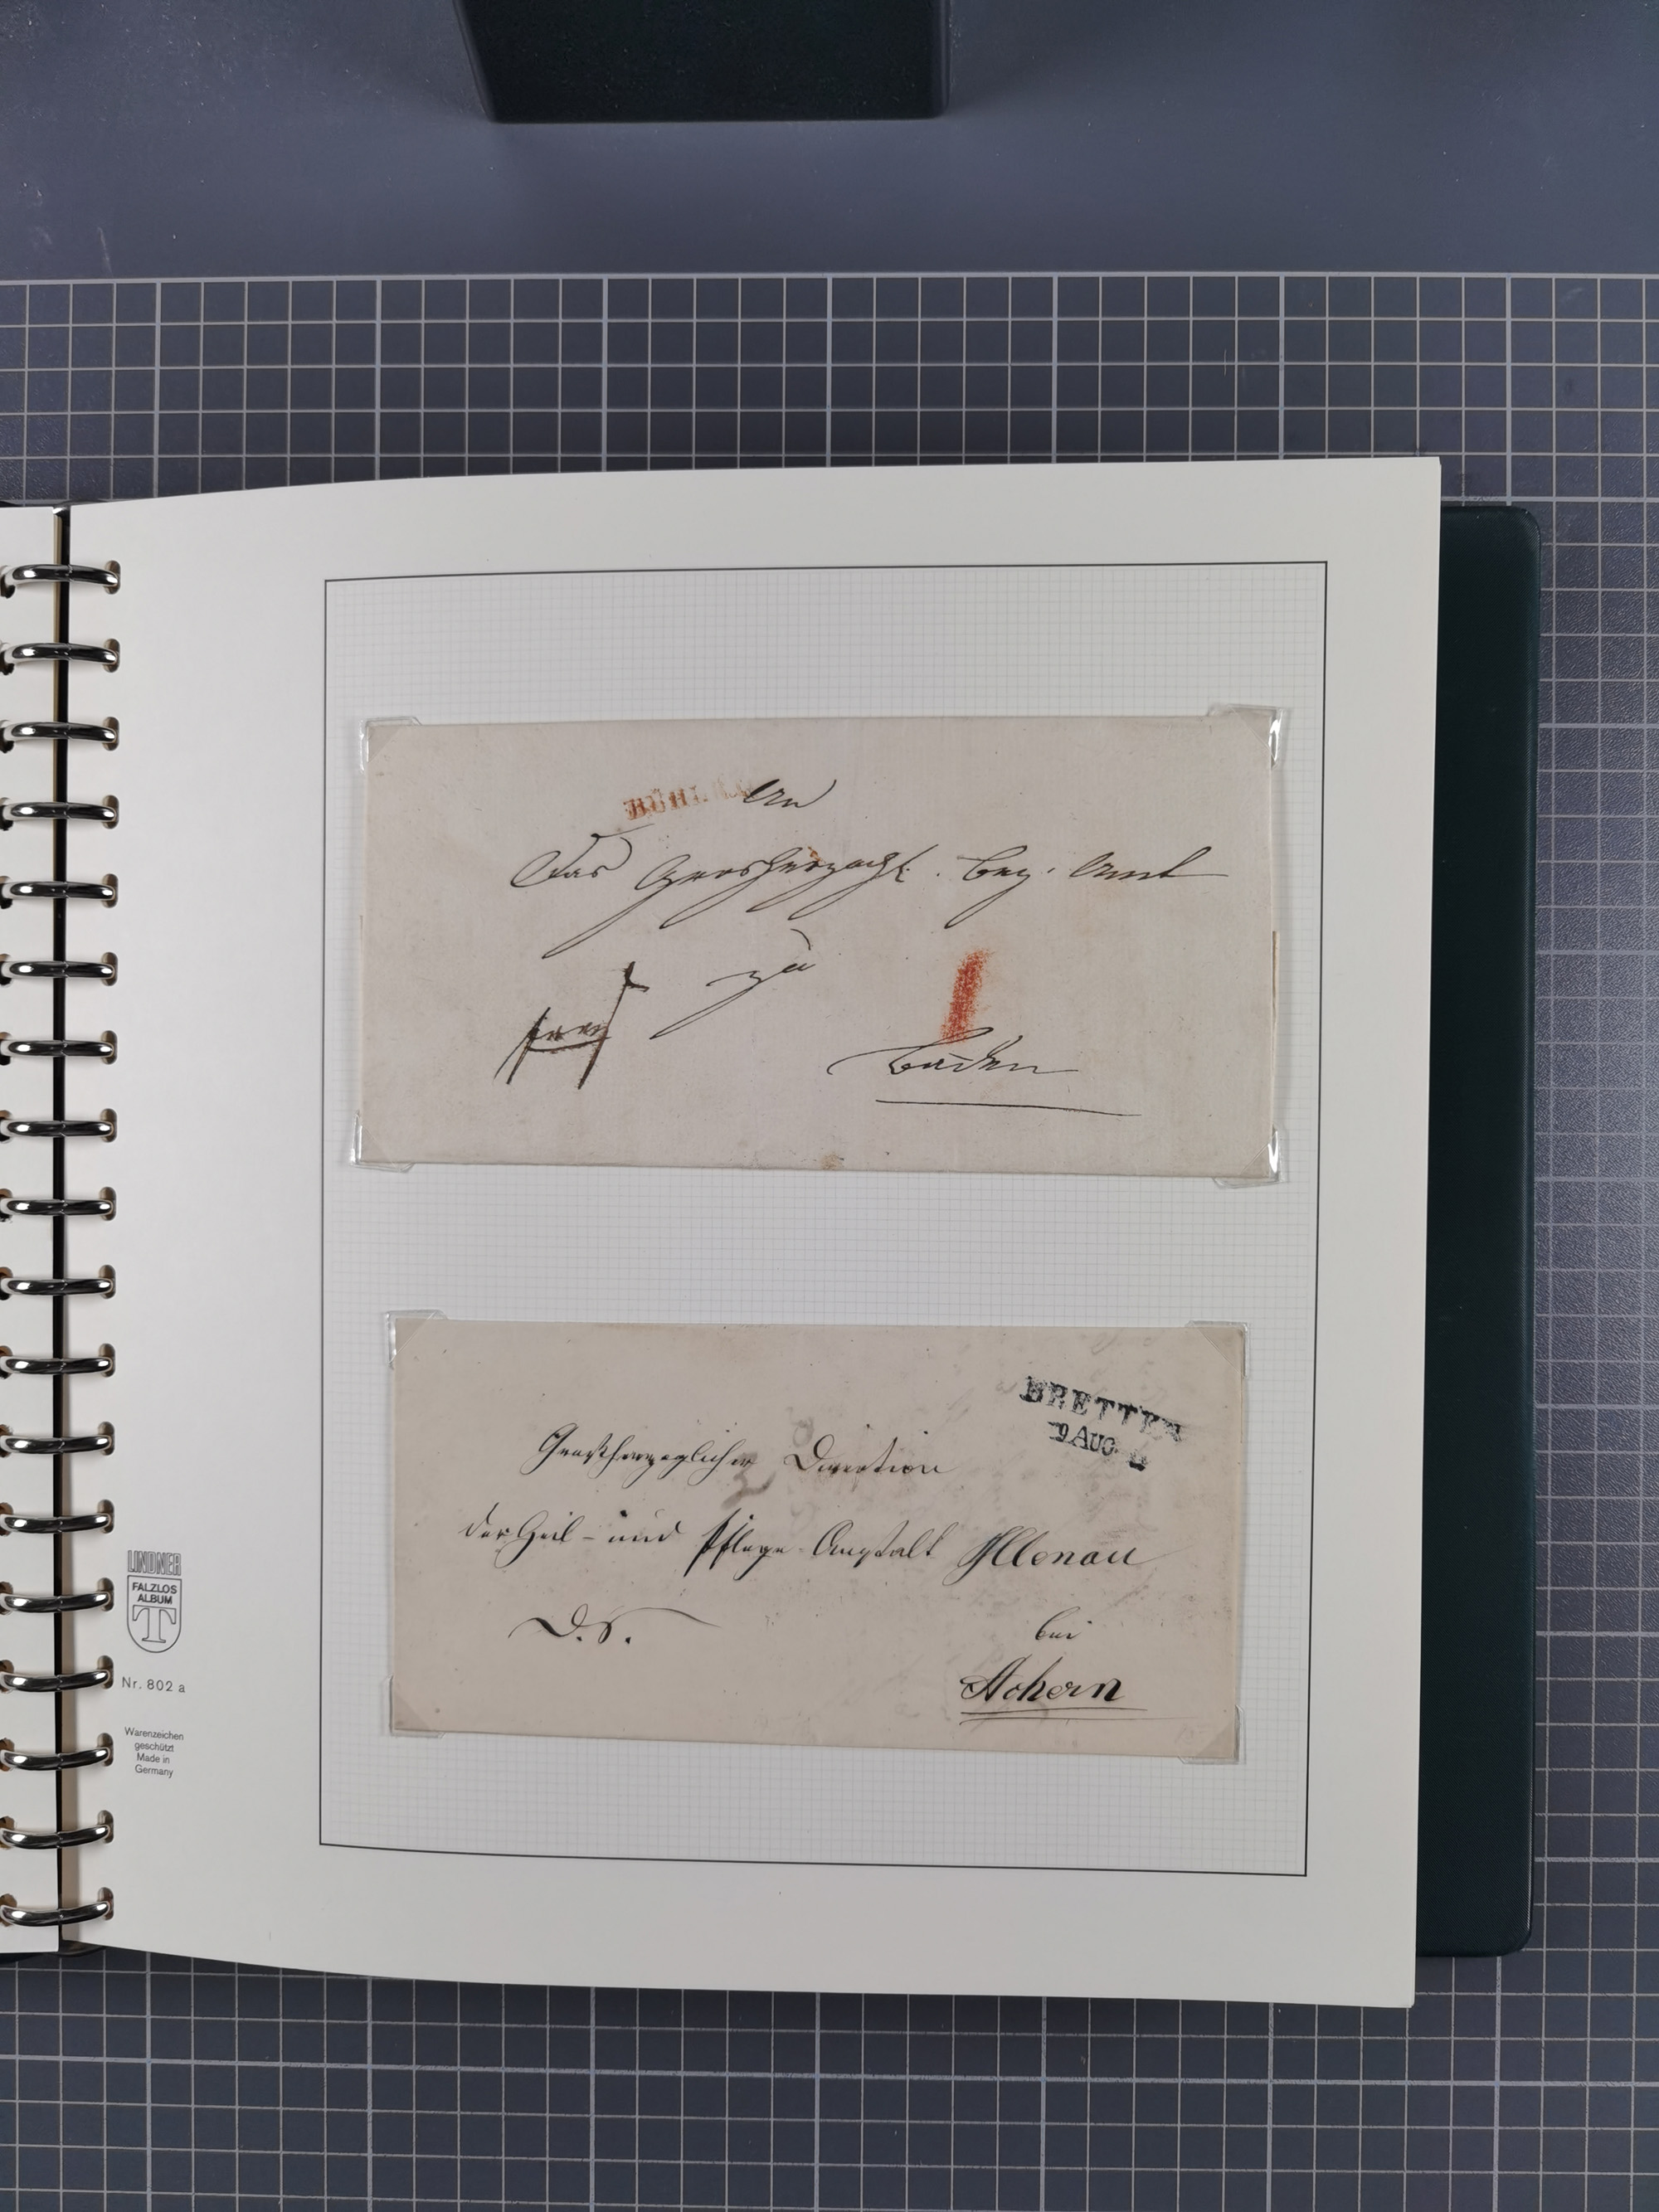 BÜHL
An
Das Grosherzogl. Bez. Amt
zu
frey
Baden
BRETTEN
9 AUG.
Großherzoglicher Direction
der Heil- und Pflege-Anstalt Illenau
D. S.
bei
Achern
LINDNER
FALZLOS
ALBUM
T
Nr. 802 a
Warenzeichen
geschützt
Made in
Germany